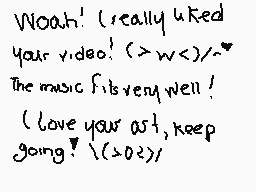 Woah! I really liked
your video! (>w<)/~♥
The music fits very well!
I love your art, keep
going! \(>o<)/